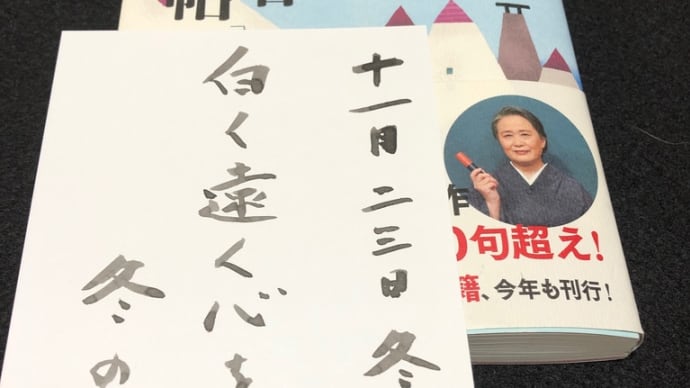 十一月二三日 冬
白く遠く心を
冬の
帖
作
0句超え!
籍、今年も刊行!